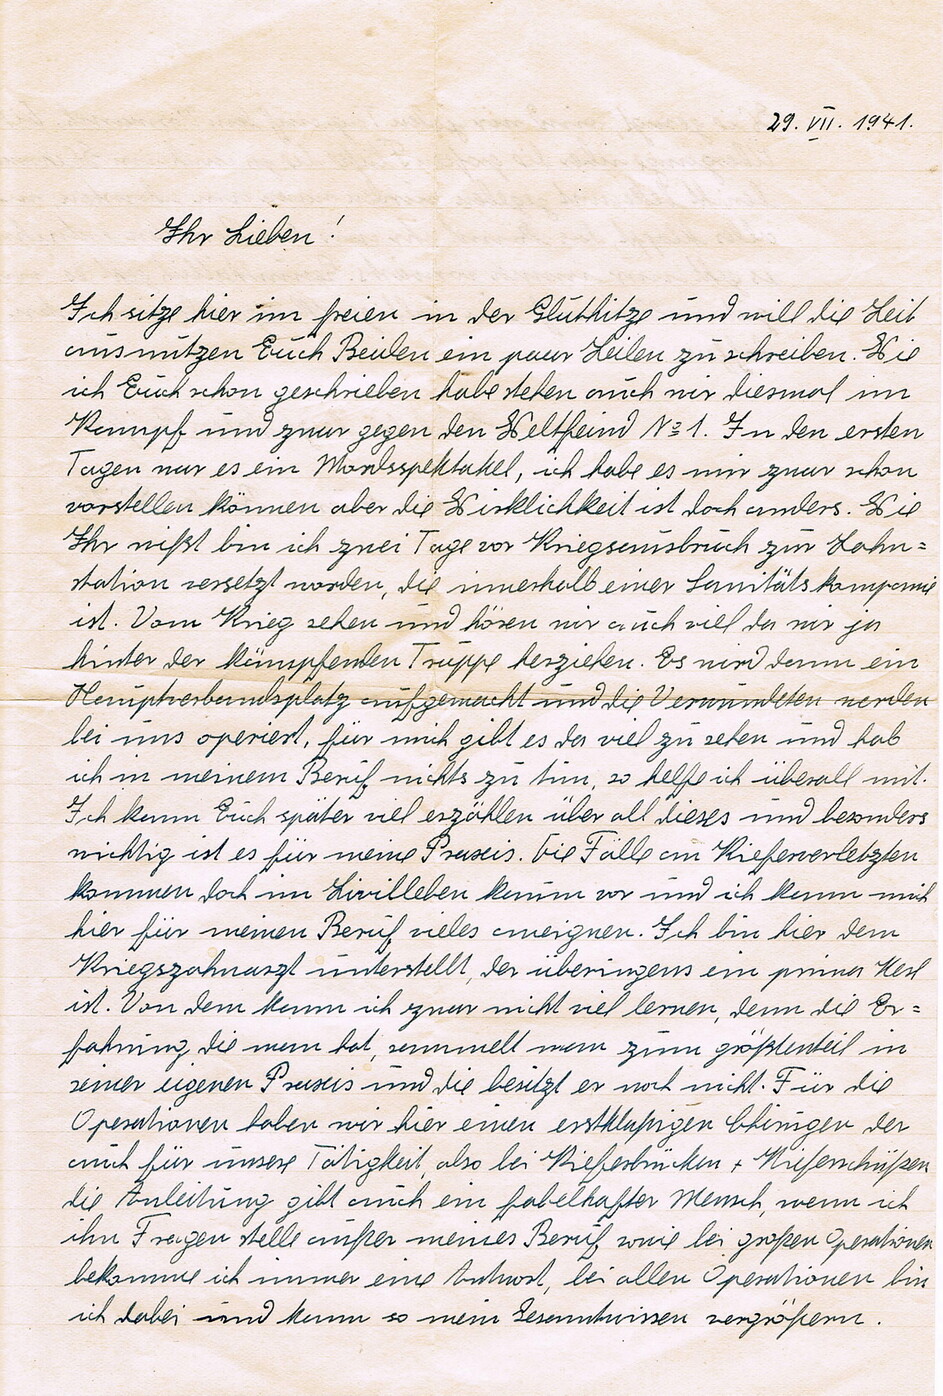 29. VII. 1941.
Ihr Lieben!
Ich sitze hier im freien in der Gluthitze und will die Zeit
ausnützen Euch Beiden ein paar Zeilen zu schreiben. Wie
ich Euch schon geschrieben habe stehen auch wir diesmal im
Kampf und zwar gegen den Weltfeind No 1. In den ersten
Tagen war es ein Mordsspektakel, ich habe es mir zwar schon
vorstellen können aber die Wirklichkeit ist doch anders. Wie
Ihr wißt bin ich zwei Tage vor Kriegsausbruch zur Zahn=
station versetzt worden, die innerhalb einer Sanitätskompanie
ist. Vom Krieg sehen und hören wir auch viel da wir ja
hinter der kämpfenden Truppe herziehen. Es wird dann ein
Hauptverbandsplatz aufgemacht und die Verwundeten werden
bei uns operiert, für mich gibt es da viel zu sehen und hab
ich in meinem Beruf nichts zu tun, so helfe ich überall mit.
Ich kann Euch später viel erzählen über all dieses und besonders
wichtig ist es für meine Praxis. Die Fälle an Kieferverletzten
kommen doch im Zivilleben kaum vor und ich kann mich
hier für meinen Beruf vieles aneignen. Ich bin hier dem
Kriegszahnarzt unterstellt, der überingens ein prima Kerl
ist. Von dem kann ich zwar nicht viel lernen, denn die Er=
fahrung die man hat, sammelt man zum größtenteil in
seiner eigenen Praxis und die besitzt er noch nicht. Für die
Operationen haben wir hier einen erstklaßigen Chirugen der
auch für unsere Tätigkeit, also bei Kieferbrüchen + Kieferschüßen
die Anleitung gibt auch ein fabelhafter Mensch, wenn ich
ihn Fragen stelle außer meines Beruf sowie bei großen Operationen
bekomme ich immer eine Antwort, bei allen Operationen bin
ich dabei und kann so mein Gesamtwissen vergrößern.